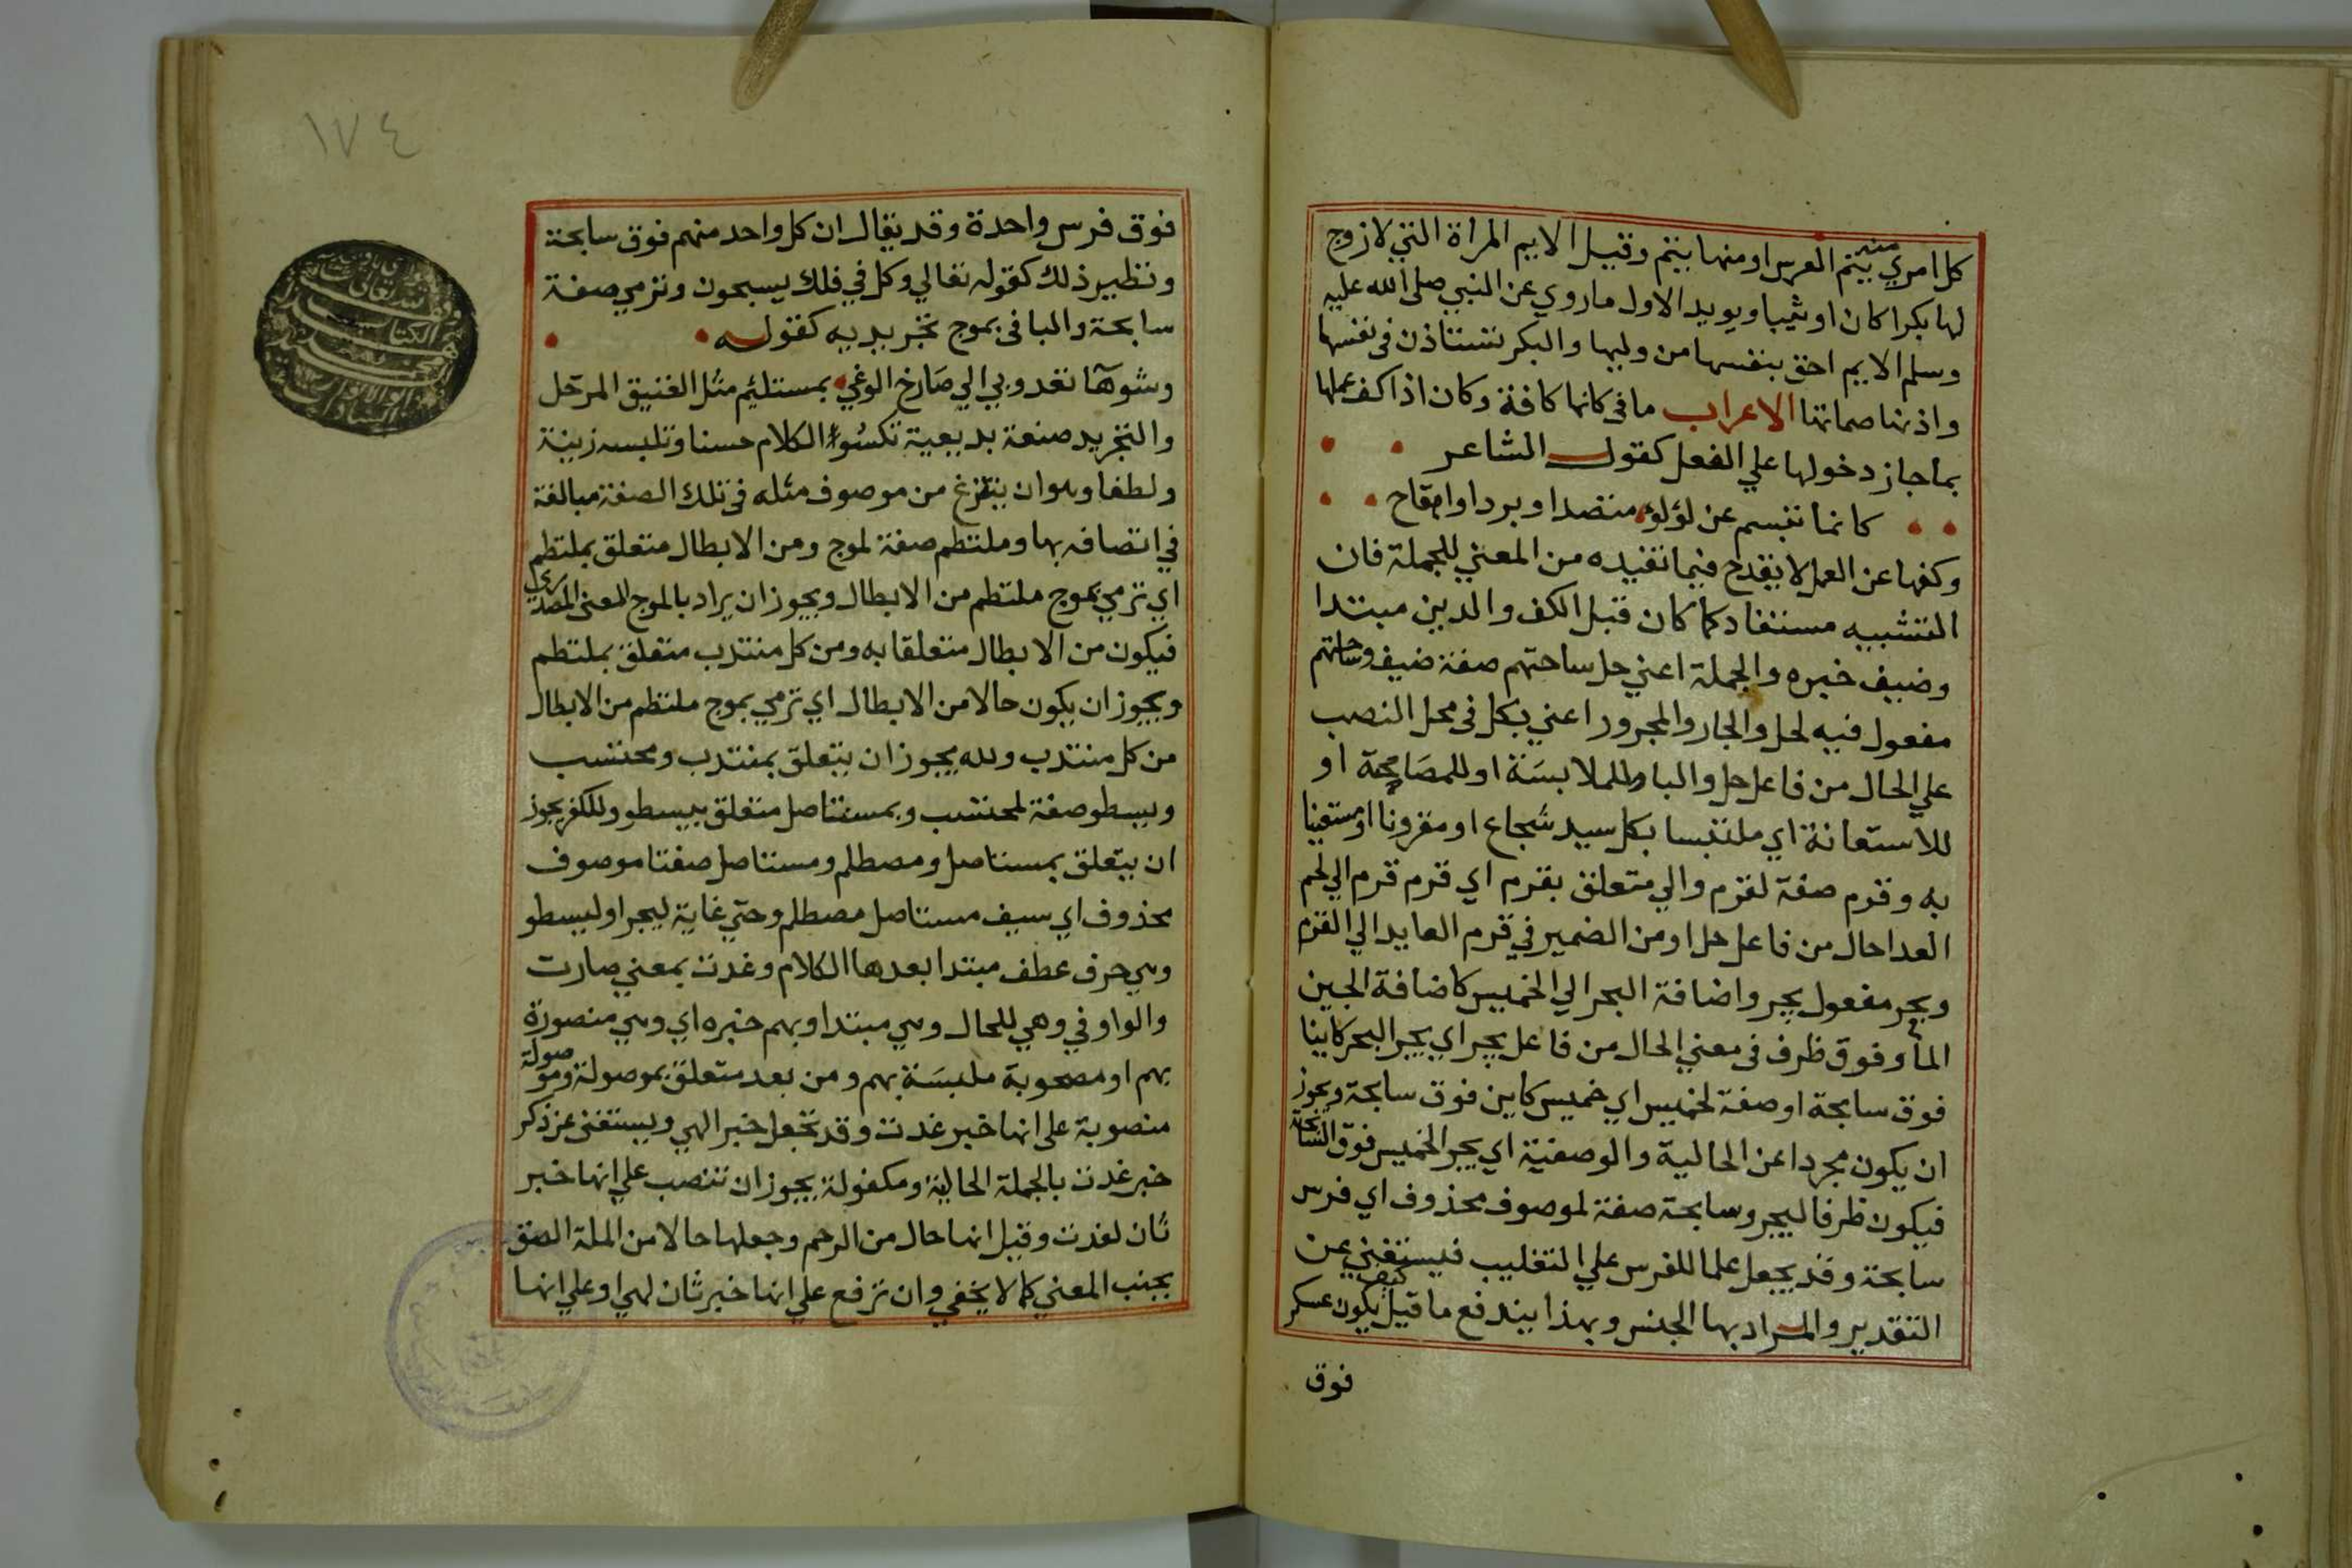 كل امري منه يتم العرس او منها يتم وقيل الايم المراة التي لا زوج
لها بكرا كان او ثيبا ويويد الاول ما روي عن النبي صلى الله عليه
وسلم الايم احق بنفسها من وليها والبكر تستاذن في نفسها
واذنها صماتها الاعراب ما في كانما كافة وكان اذا كف عملها
بما جاز دخولها علي الفعل كقول الشاعر
كانما تبسم عن لؤلؤ منضدا وبردا واقاح
وكفها عن العمل لا يقدح فيما تفيده من المعني للجملة فان
التشبيه مستفاد كما كان قبل الكف والدين مبتدا
وضيف خبره والجملة اعني حل ساحتهم صفة ضيف وساحتهم
مفعول فيه لحل والجار والمجرور اعني بكل في محل النصب
علي الحال من فاعل حل والبا للملابسة او للمصاحبة او
للاستعانة اي ملتبسا بكل سيد شجاع او مقرونا او مستعينا
به وقرم صفة لقرم والي متعلق بقرم اي قرم قرم الي لحم
العدا حال من فاعل حل او من الضمير في قرم العايد الي القرم
وبحر مفعول يجر واضافة البحر الي الخميس كاضافة لجين
الما وفوق ظرف في معني الحال من فاعل يجر اي يجر البحر كاينا
فوق سابحة او صفة لخميس اي خميس كاين فوق سابحة ويجوز
ان يكون مجردا عن الحالية والوصفية اي يجر الخميس فوق السابحة
فيكون ظرفا ليجر وسابحة صفة لموصوف محذوف اي فرس
سابحة وقد يجعل علما للفرس علي التغليب فيستغني عن
التقدير والمراد بها الجنس وبهذا يندفع ما قيل كيف يكون عسكر
فوق
١٧٤
فوق فرس واحدة وقد يقال ان كل واحد منهم فوق سابحة
ونظير ذلك كقوله تعالي وكل في فلك يسبحون وترمي صفة
سابحة والبا في بموج تجريديه كقوله
وشوها تعدو بي الي صارخ الوغي بمستلئم مثل الفنيق المرحل
والتجريد صنعة بديعية تكسوا الكلام حسنا وتلبسه زينة
ولطفا وهو ان ينتزع من موصوف مثله في تلك الصفة مبالغة
في اتصافه بها وملتطم صفة لموج ومن الابطال متعلق بملتطم
اي ترمي بموج ملتطم من الابطال ويجوز ان يراد بالموج المعني المصدري
فيكون من الابطال متعلقا به ومن كل منتدب متعلق بملتطم
ويجوز ان يكون حالا من الابطال اي ترمي بموج ملتطم من الابطال
من كل منتدب ولله يجوز ان يتعلق بمنتدب ومحتسب
ويسطو صفة لمحتسب وبمستاصل متعلق بيسطو وللكفر يجوز
ان يتعلق بمستاصل ومصطلم ومستاصل صفتا موصوف
محذوف اي سيف مستاصل مصطلم وحتي غاية ليجر او ليسطو
وهي حرف عطف مبتدا بعدها الكلام وغدت بمعني صارت
والواو في وهي للحال وهي مبتدا وبهم خبره اي وهي منصورة
بهم او مصحوبة ملبسة بهم ومن بعد متعلق بموصولة وموصولة
منصوبة علي انها خبر غدت وقد تجعل خبر الهي ويستغني عن ذكر
خبر غدت بالجملة الحالية ومكفولة يجوز ان تنصب علي انها خبر
ثان لغدت وقيل انها حال من الرحم وجعلها حالا من الملة الصق
بجنب المعني كما لا يخفي وان ترفع علي انها خبر ثان لهي او علي انها